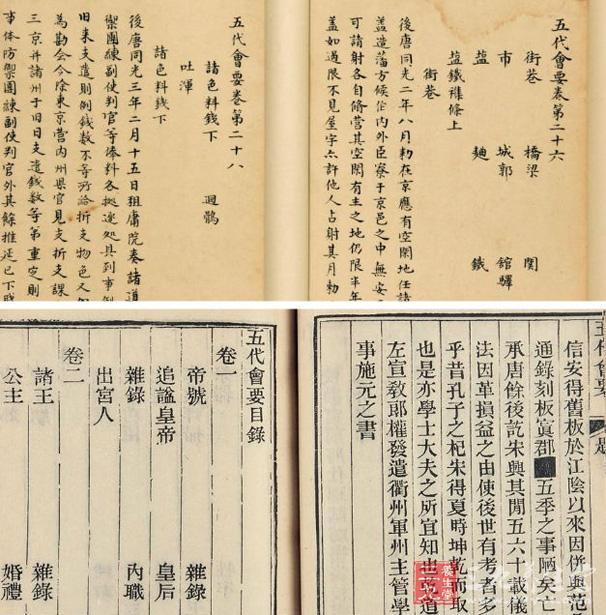 五代會要卷第二十六
街巷 橋梁 關
市 城郭 館驛
鹽 麹 鐵
鹽鐵雜條上
街巷
後唐同光二年八月勑在京應有空閑地任諸
盖造藩方候伯内外臣寮于京邑之中無安
可請射各自修營其空閑有主之地仍限半年
盖如過限不見屋宇亦許他人占射其月勑
五代會要卷第二十八
諸色料錢下 迴鶻
吐渾
諸色料錢下
後唐同光三年二月十五日租庸院奏諸道
禦團練副使判官等俸料各據逐處具到事例
旧来支遣則例錢數不等所給折支物色又
為勘会今除東京管内州縣官見支折支課
三京并諸州于旧日支遣錢數等第重定則
事体防禦團練副使判官外其餘推延已下
五代會要 題
信安得舊板於江陰以來因併與范
通錄刻板寘郡 五季之事陋矣亡
承唐餘後訖宋興其閒五六十載儀
法因革損益之由使後世有考者多
乎昔孔子之杞宋得夏時坤乾而取
也是亦學士大夫之所宜知也乾道
左宣敎郎權發遣衢州軍州主管學
事施元之書
五代會要目錄
卷一
帝號 雜錄
追謚皇帝 皇后
雜錄 内職
出宮人
卷二
諸王 雜錄
公主 婚禮